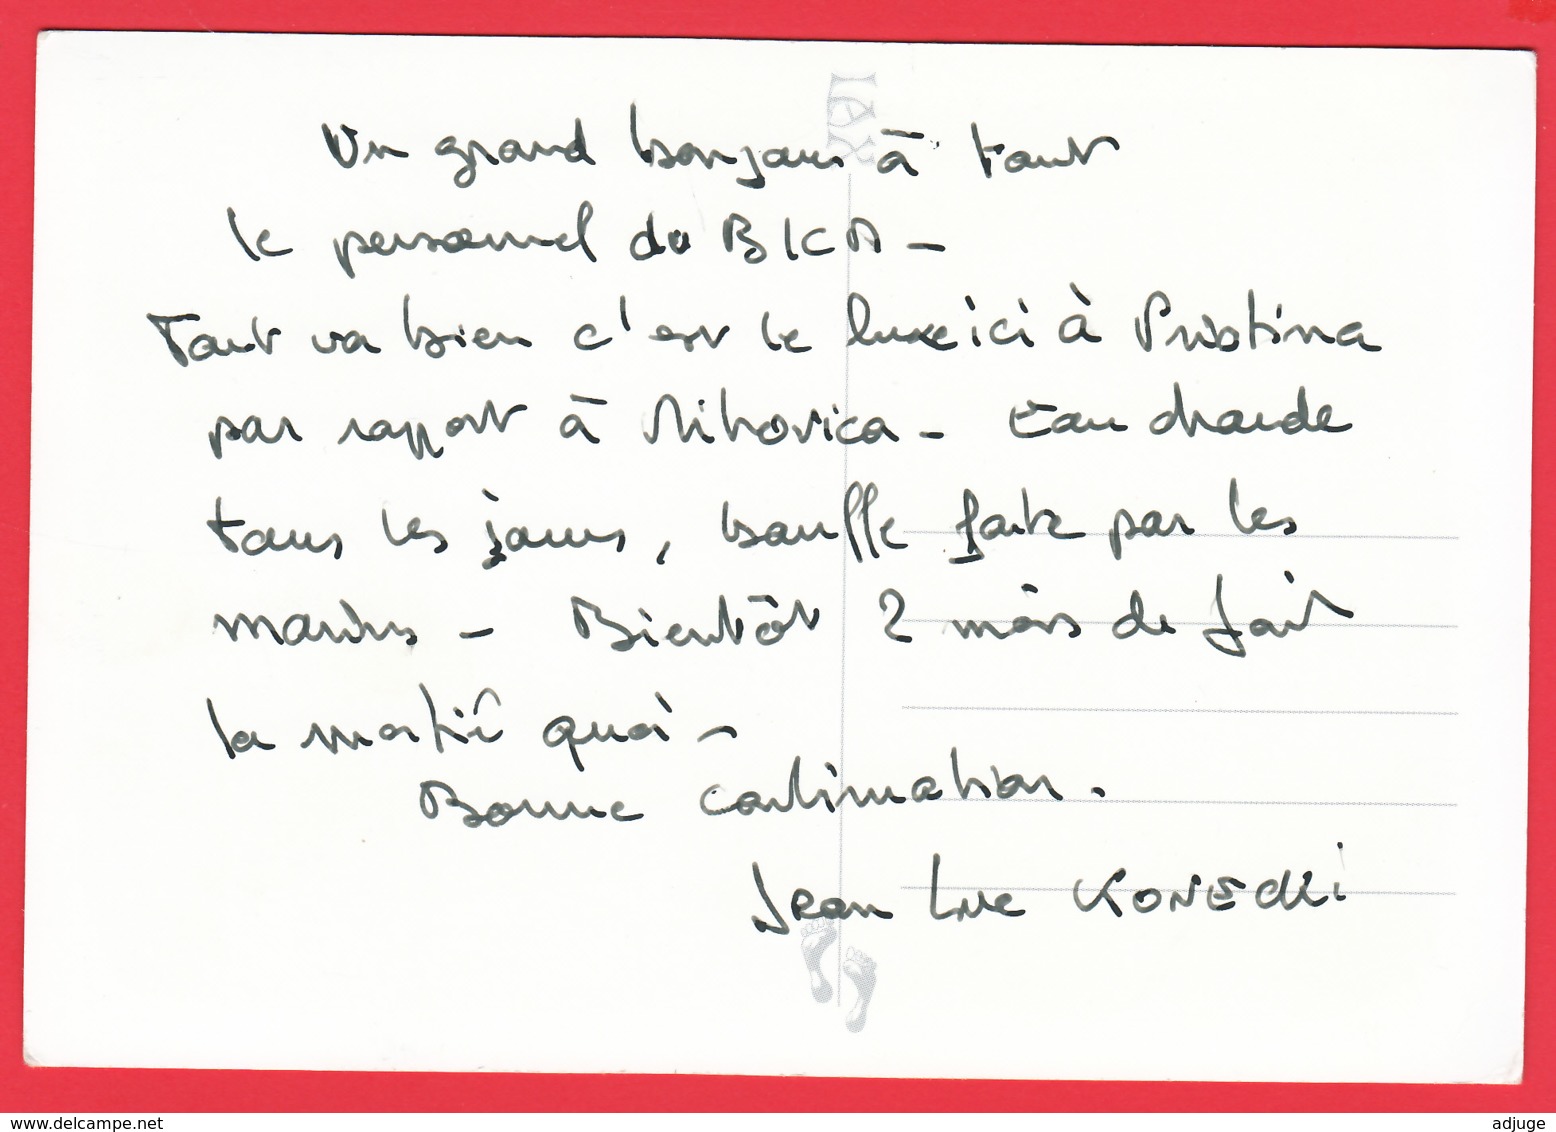 Un grand bonjour à tout
le personnel du BICA -
Tout va bien c'est le luxe ici à Pristina
par rapport à Mitrovica - Eau chaude
tous les jours, bouffe faite par les
marins - Bientôt 2 mois de fait
la moitié quoi -
Bonne continuation.
Jean Luc KONECKI
www.delcampe.net
adjuge